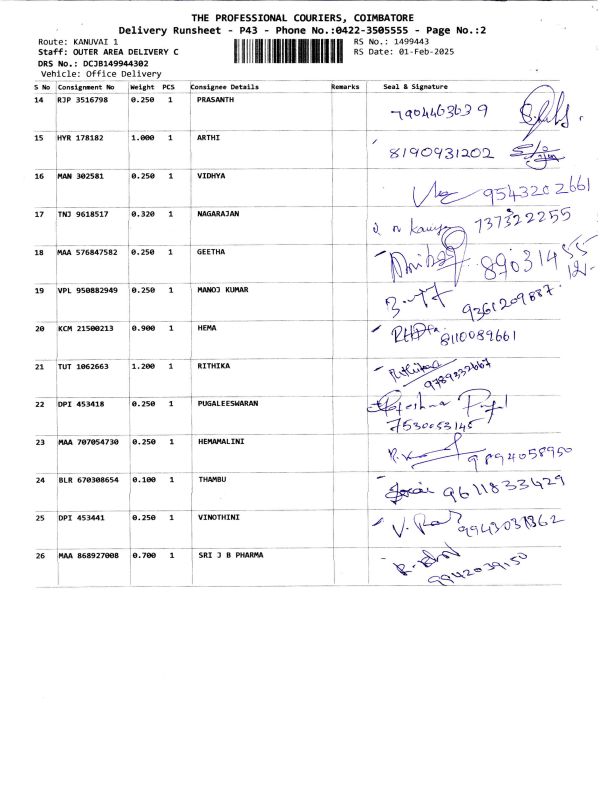 THE PROFESSIONAL COURIERS, COIMBATORE
Delivery Runsheet - P43 - Phone No.:0422-3505555 - Page No.:2
Route: KANUVAI 1 RS No.: 1499443
Staff: OUTER AREA DELIVERY C RS Date: 01-Feb-2025
DRS No.: DCJB149944302
Vehicle: Office Delivery
S No Consignment No Weight PCS Consignee Details Remarks Seal & Signature
14 RJP 3516798 0.250 1 PRASANTH 7904463639
15 HYR 178182 1.000 1 ARTHI 8190931202
16 MAN 302581 0.250 1 VIDHYA 9543202661
17 TNJ 9618517 0.320 1 NAGARAJAN 737322255
18 MAA 576847582 0.250 1 GEETHA 89031455
19 VPL 950882949 0.250 1 MANOJ KUMAR 9361209887
20 KCM 21500213 0.900 1 HEMA 8110089661
21 TUT 1062663 1.200 1 RITHIKA Rithika
9789332667
22 DPI 453418 0.250 1 PUGALEESWARAN
7530053145
23 MAA 707054730 0.250 1 HEMAMALINI 9894058950
24 BLR 670308654 0.100 1 THAMBU 9611833429
25 DPI 453441 0.250 1 VINOTHINI 9943031862
26 MAA 868927008 0.700 1 SRI J B PHARMA
9942039150